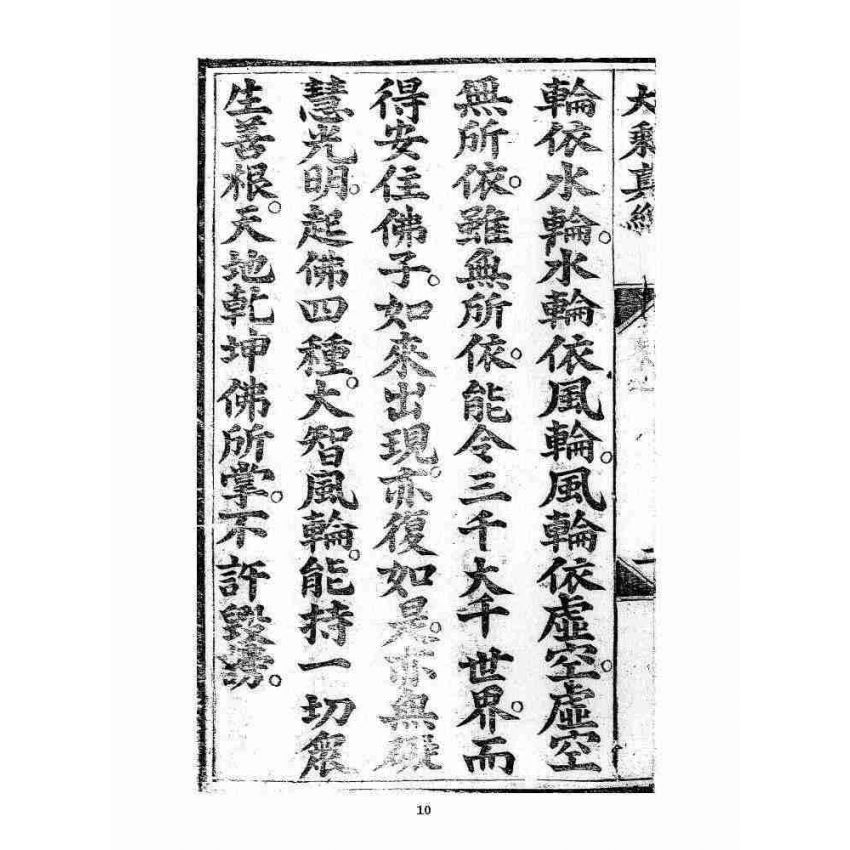 大乘真經
二
輪依水輪。水輪依風輪。風輪依虛空。虛空
無所依。雖無所依。能令三千大千世界。而
得安住佛子。如來出現。亦復如是。亦無礙
慧光明。起佛四種。大智風輪。能持一切衆
生善根。天地乾坤佛所掌。不許毀謗。
10